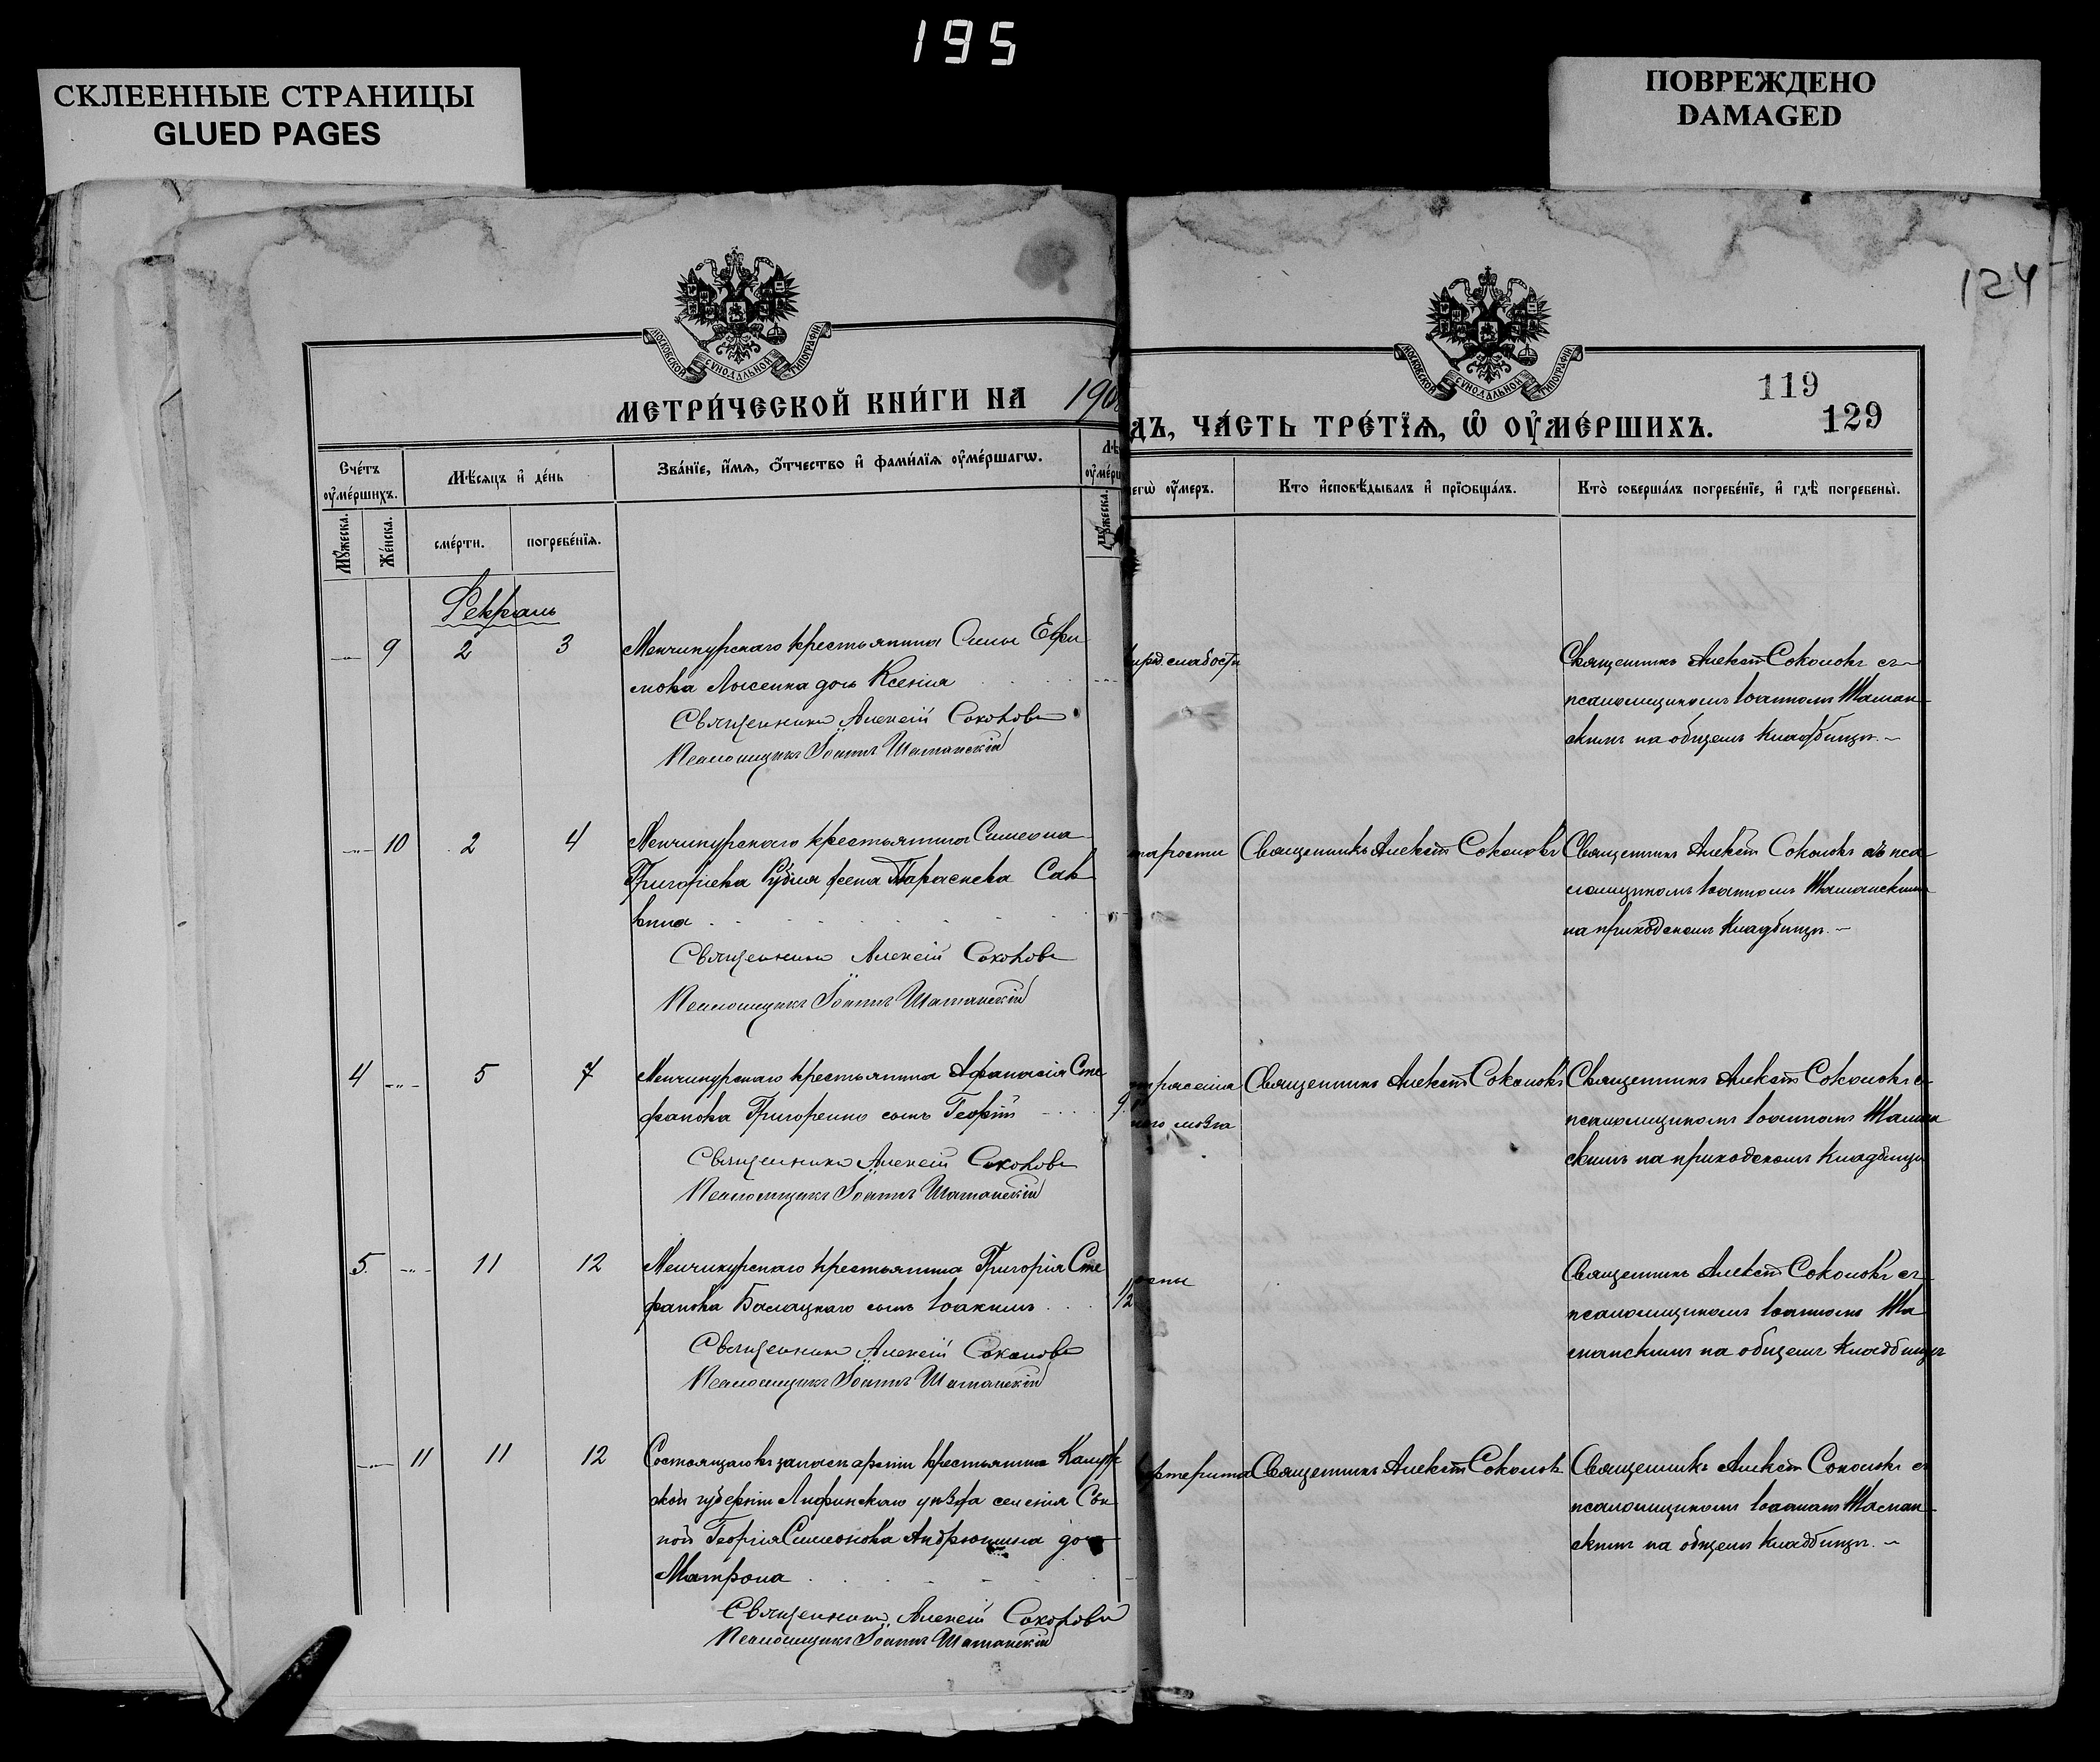 195
СКЛЕЕННЫЕ СТРАНИЦЫ
GLUED PAGES
ПОВРЕЖДЕНО
DAMAGED
124
МОСКОВСКОЙ СѴНОДАЛЬНОЙ ТИПОГРАФІИ
МОСКОВСКОЙ СѴНОДАЛЬНОЙ ТИПОГРАФІИ
119
129
МЕТРИ́ЧЕСКОЙ КНИ́ГИ НА 190
дъ, ЧА́СТЬ ТРЕ́ТЇѦ, Ѡ ОУ҆МЕ́РШИХЪ.
Сче́тъ
оу҆ме́ршихъ.
Мѣ́сяцъ и҆ де́нь
Зва́нїе, и҆́мѧ, ѻ҆́тчество и҆ фами́лїѧ оу҆ме́ршагѡ.
Лѣ
оу҆ме́рш
чегѡ̀ оу҆́меръ.
Кто и҆сповѣ́дывалъ и҆ прїѡбща́лъ.
Кто̀ соверша́лъ погребе́нїе, и҆ гдѣ̀ погребены̀.
Мꙋ́жеска.
Же́нска.
сме́рти.
погребе́нїѧ.
Мꙋ́жеска.
Февраль
9 2 3 Менчикурскаго крестьянина Силы Ефи
мова Лысенка дочь Ксенія
Священникъ Алексій Соколовъ
Псаломщикъ Іоаннъ Шаманскій
слабости
Священникъ Алексій Соколовъ съ
псаломщикомъ Іоанномъ Шаман
скимъ на общемъ кладбищѣ.
10 2 4 Менчикурскаго крестьянина Симеона
Григоріева Рубля жена Параскева Сав
вина
Священникъ Алексій Соколовъ
Псаломщикъ Іоаннъ Шаманскій
тарости
Священникъ Алексій Соколовъ
Священникъ Алексій Соколовъ съ пса
ломщикомъ Іоанномъ Шаманскимъ
на приходскомъ кладбищѣ.
4 5 7 Менчикурскаго крестьянина Афанасія Сте
фанова Григоренко сынъ Георгій
Священникъ Алексій Соколовъ
Псаломщикъ Іоаннъ Шаманскій
9
трясенія
ного мозга
Священникъ Алексій Соколовъ
Священникъ Алексій Соколовъ съ
псаломщикомъ Іоанномъ Шаман
скимъ на приходскомъ кладбищѣ
5 11 12 Менчикурскаго крестьянина Григорія Сте
фанова Балацкаго сынъ Іоакимъ
Священникъ Алексій Соколовъ
Псаломщикъ Іоаннъ Шаманскій
1/2
оспы
Священникъ Алексій Соколовъ съ
псаломщикомъ Іоанномъ Ша
манскимъ на общемъ кладбищѣ
11 11 12 Состоящаго въ запасѣ арміи крестьянина Калуж
ской губерніи Лифинскаго уѣзда селенія Сок
ной Георгія Симеонова Андрюшина дочь
Матрона
Священникъ Алексій Соколовъ
Псаломщикъ Іоаннъ Шаманскій
фтерита
Священникъ Алексій Соколовъ
Священникъ Алексій Соколовъ съ
псаломщикомъ Іоанномъ Шаман
скимъ на общемъ кладбищѣ.